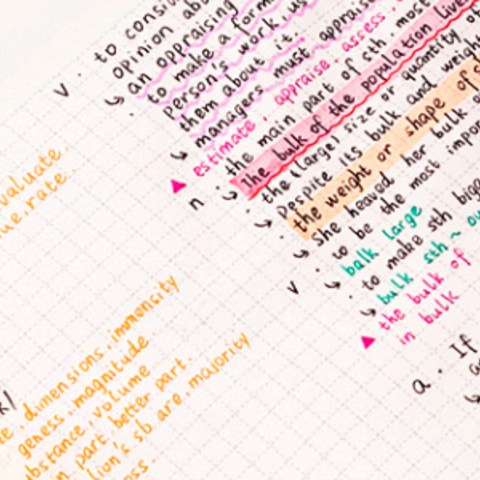 v. to consi
opinion abo
↳ an appraising
· to make a form
person's work, us
them about it.
↳ managers must apprais
estimate. appraise. assess.
valuate.
ue. rate.
n · the main part of sth, most
↳ The bulk of the population live
· the (large) size or quantity of
↳ Despite its bulk and weigh
· the weight or shape of s
↳ She heaved her bulk
v · to be the most impor
↳ balk large
· to make sth bigg
↳ bulk sth ~ ou
▲ the bulk of
in bulk
dimensions. immensity
geness. magnitude.
ubstance. volume
n part. better part.
lion's sb are. majority
oss.
a. If